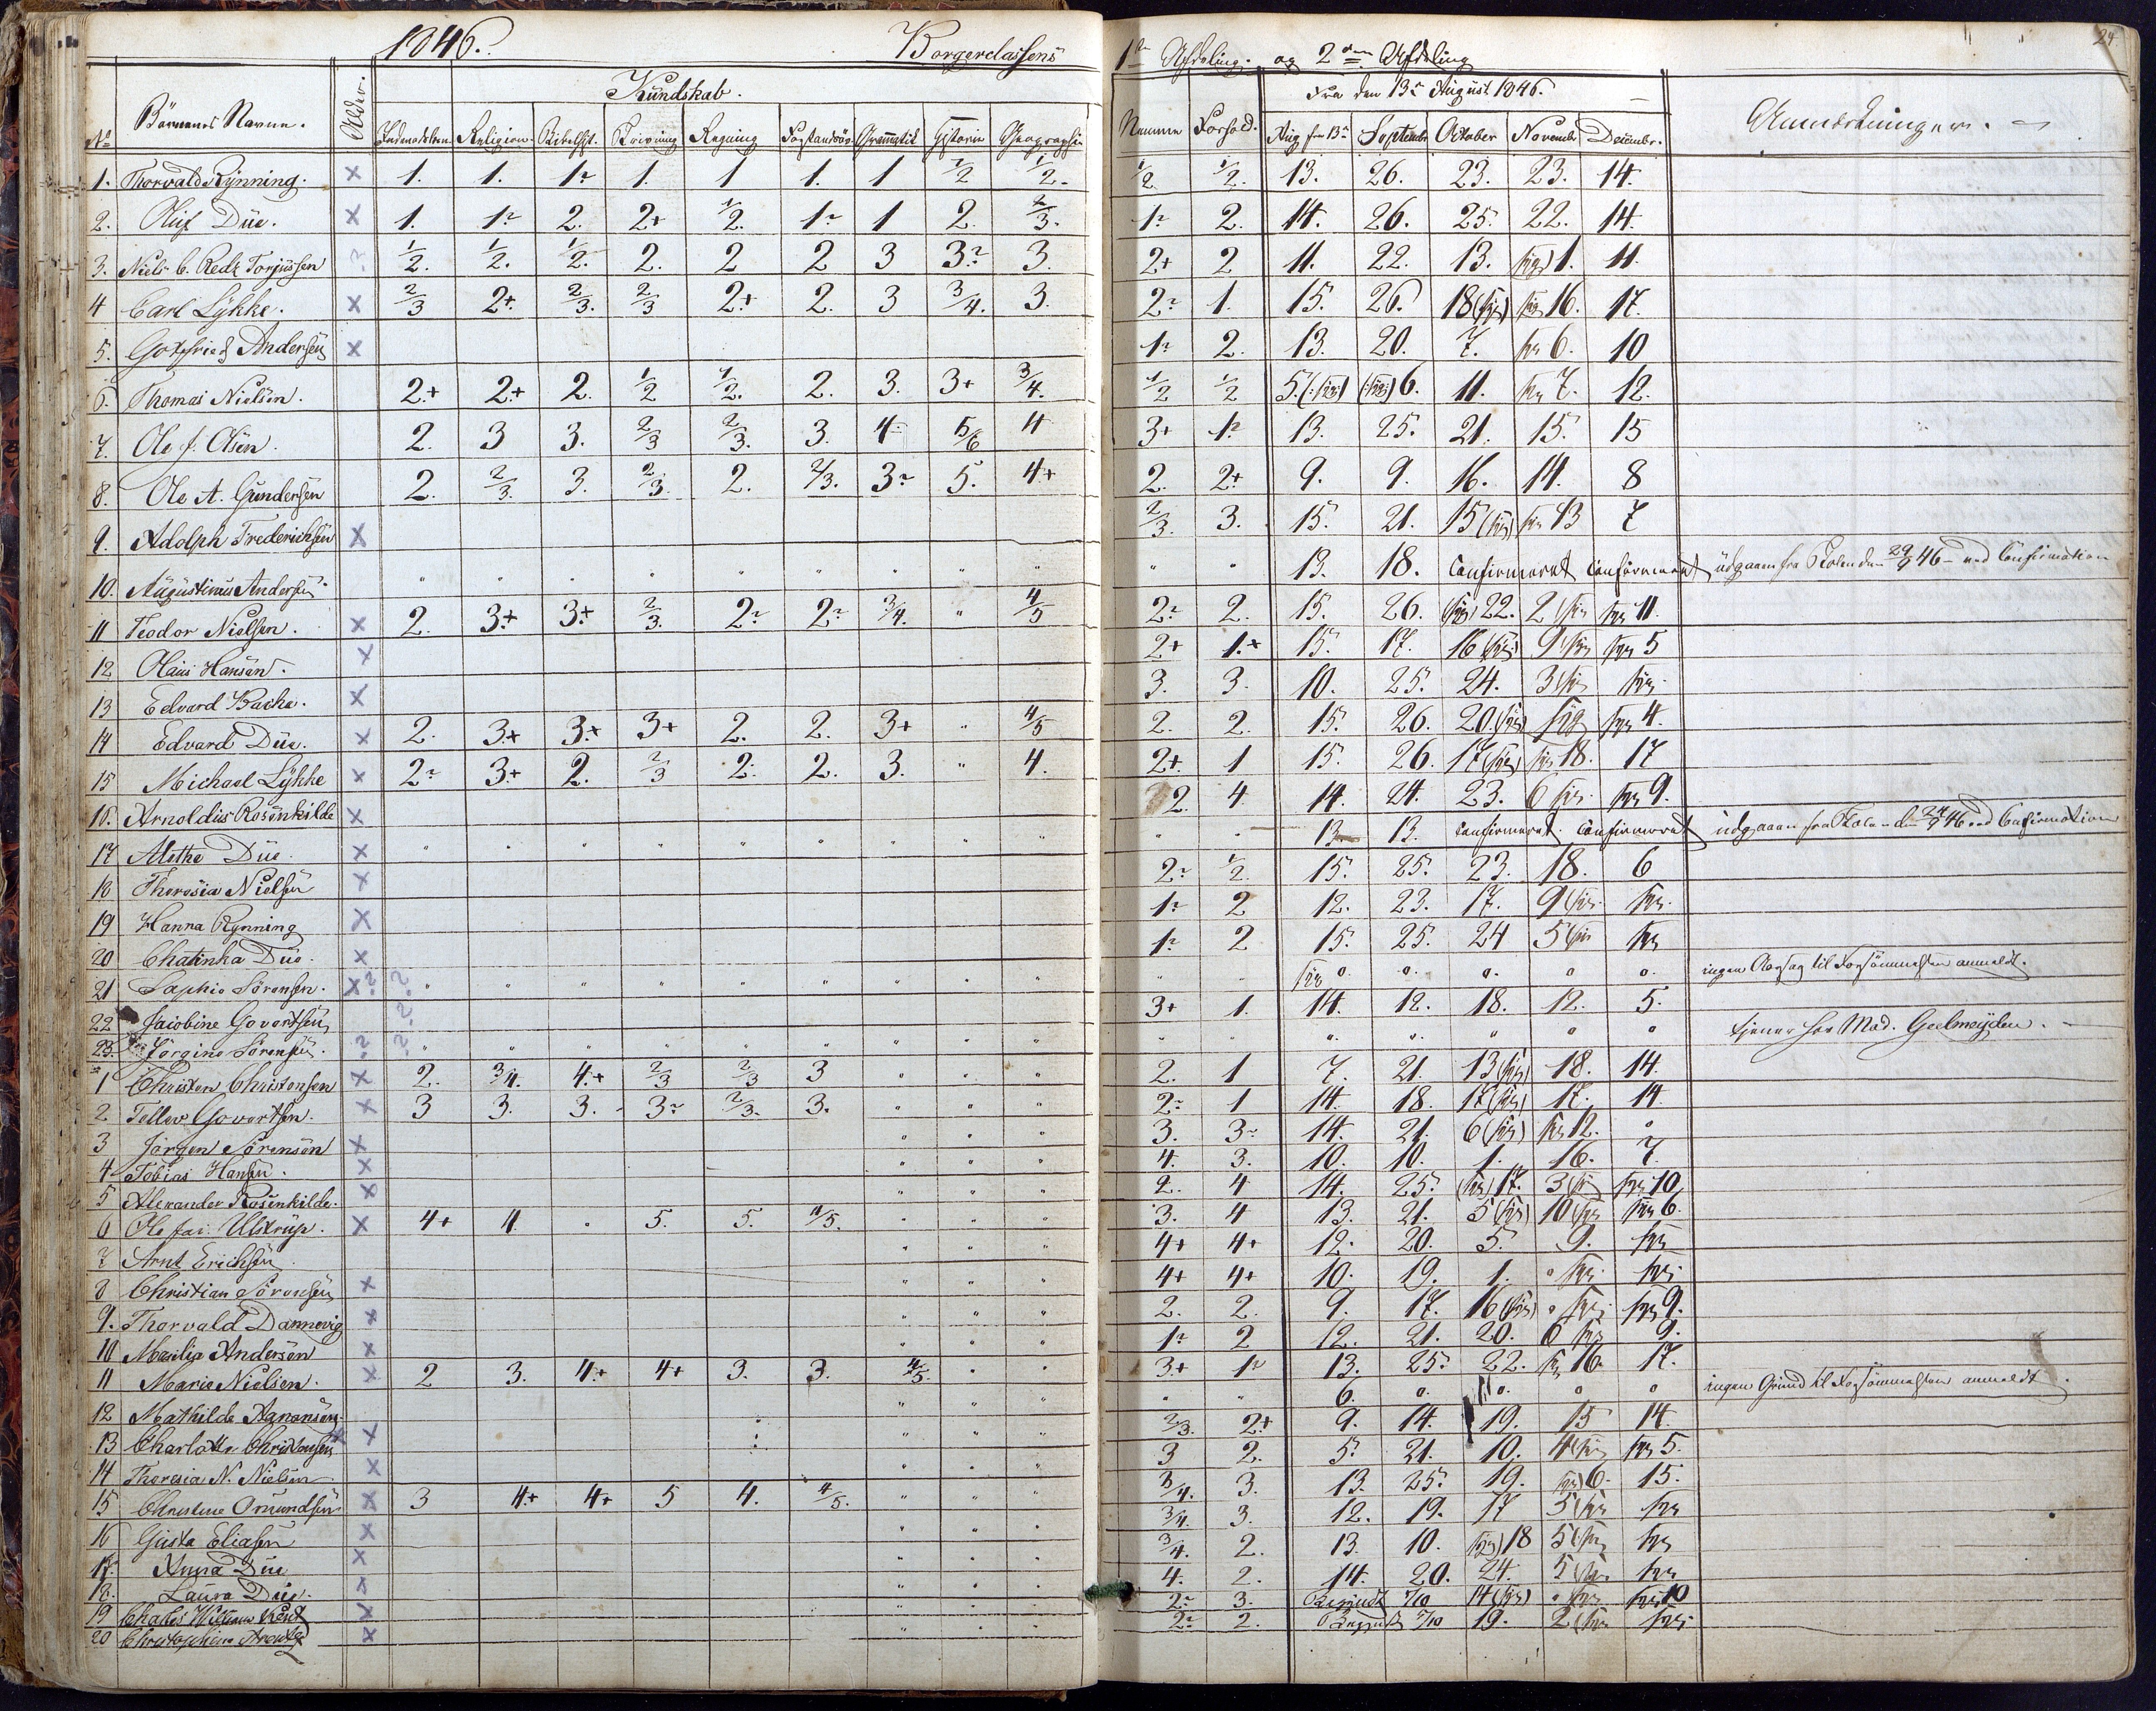 1846. Borgerclassens 1ste Afdeling. og 2den Afdeling 24
Kundskab. Fra den 13de August 1846.
No Børnenes Navne. Alder. Indenadslæsn. Religion. Bibelhist. Skrivning Regning Forstandsöv. Grammatik Historie Geographie Nemme Forhold. Aug. fra 13de September October November December. Anmærkninger.
1. Thorvald Rynning. x 1. 1. 1÷ 1. 1 1. 1 1/2 1/2. 1/2. 1/2. 13. 26. 23. 23. 14.
2. Oluf Düe. x 1. 1÷ 2. 2+ 1/2. 1÷ 1 2. 2/3. 1÷ 2. 14. 26. 25. 22. 14.
3. Niels C. Torjussen ? 1/2. 1/2. 1/2. 2. 2 2 3 3÷ 3. 2+ 2 11. 22. 13. syg) 1. 11.
4 Carl Lykke. x 2/3 2+. 2/3. 2/3 2+ 2. 3 3/4. 3. 2÷ 1. 15. 26. 18 (syg) syg 16. 17.
5. Gotfried Andersen x 1÷ 2. 13. 20. 7. syg 6. 10
6. Thomas Nielsen. 2.+ 2+ 2. 1/2 1/2. 2. 3. 3+ 3/4. 1/2 1/2 5.(syg) (syg) 6. 11. syg 7. 12.
7. Ole J. Olsen. 2. 3 3. 2/3 2/3. 3. 4 5/6 4 3+ 1÷ 13. 25. 21. 15. 15
8. Ole A. Gundersen 2. 2/3. 3. 2/3. 2. 2/3. 3÷ 5. 4+ 2. 2+ 9. 9. 16. 14. 8
9. Adolph Frederichsen x 2/3. 3. 15. 21. 15 (syg) syg 13 7
10. Augustinus Andersen. " " " " " " " " " " " 13. 18. Confirmeret Confirmeret udgaaen fra Skolen den 29/9 46 ved Confirmation
11 Teodor Nielsen. x 2. 3+ 3+ 2/3. 2÷ 2÷ 3/4. " 4/5 2÷ 2. 15. 26. (syg) 22. 2 (syg syg 11.
12 Olaus Hansen. x 2+ 1.+ 15. 17. 16 (syg) 9 (syg syg 5
13 Edvard Bache. x 3. 3. 10. 25. 24. 3 (syg syg
14 Edvard Düe. x 2. 3+ 3+ 3+ 2. 2. 3+ " 4/5 2. 2. 15. 26. 20. (syg) syg syg 4.
15 Michael Lykke x 2÷ 3+ 2. 2/3 2. 2. 3. " 4. 2+. 1 15. 26. 17 (syg) syg 18. 17
16. Arnoldus Rosenkilde x 2. 4 14. 24. 23. 6 syg. syg 9.
17 Alethe Düe. x " " " " " " " " " " " 13 13. Confirmeret. Confirmeret udgaaen fra Skolen den 29/9 46 ved Confirmation
18 Theresia Nielsen x 2÷ 1/2. 15. 25. 23. 18. 6
19 Hanna Rynning x 1÷ 2 12. 23. 17. 9 (syg. syg.
20 Chatinka Düe. x 1÷ 2 15. 25. 24 5 (syg syg
21 Sophie Sörensen. x ? " " " " " " " " " syg 0. 0. 0. 0 0. ingen Aarsag til Forsömmelsen anmeldt.
22 Jaiobine Govertsen 3+ 1. 14. 12. 18. 12. 5.
23. Jörgine Sörensen. ? " " " " " " " " " " " " " " " " tjener hos Mad. Geelmeyden.
1 Christen Christensen x 2. 3/4. 4.+ 2/3 2/3 3 " " " 2. 1 7. 21. 13 (syg) 18. 14.
2. Tellev Govertsen. x 3 3. 3. 3÷ 2/3. 3. " " " 2÷ 1 14. 18. 17 (syg) 17. 14.
3 Jörgen Sörensen x " " " 3. 3÷ 14. 21. 6 (syg) syg 12. "
4 Tobias Hansen. x " " " 4. 3. 10. 10. 1. 16. 7.
5 Alexander Rosenkilde. x " " " 2. 4 14. 25. (syg) 17. 3 (syg syg 10
6 Ole Jac. Ulstrup. x 4+ 4. " 5. 5. 4/5. " " " 3. 4 13. 21. 5 (syg) 10 (syg syg 6.
7 Arnt Erichsen. " " " 4+ 4+ 12. 20. 5. 9. syg
8 Christian Sörensen x " " " 4+ 4+ 10. 19. 1. " syg syg
9. Thorvald Dannevig x " " " 2. 2. 9. 17. 16 (syg) " syg syg 9.
10 Masilia Andersen x " " " 1÷ 2 12. 21. 20. 6 syg 9.
11 Marie Nielsen. x 2 3. 4.+ 4+ 3. 3. 4/5. " " 3+ 1÷ 13. 25. 22. syg 16. 17.
12 Mathilde Aanonsen. " " " " " 6. 0. 0. 0 0 ingen Grund til Forsömmelsen anmeldt.
13 Charlotte Christensen x " " " 2/3. 2+ 9. 14. 19. 15 14.
14 Theresia N. Nielsen x " " " 3 2. 5. 21. 10. 4 syg syg 5.
15 Christine Omundsen x 3 4.+ 4+ 5 4. 4/5. " " " 3/4. 3. 13. 25. 19. syg) 6. 15.
16 Gusta Eliasen x " " " 3/4. 3. 12. 19. 17 5 (syg syg
17. Anna Düe x " " " 3/4. 2. 13. 10. syg) 18 5 (syg syg
18. Laura Düe. x " " " 4. 2. 14. 20. 24. 5 (syg syg
19 Chales William Kent x " " " 2÷ 3. Begyndt 7/10 14 (syg) " syg syg 10
20 Christophine Arentz x " " " 2÷ 2. Begyndt 7/10 19. 2 (syg syg